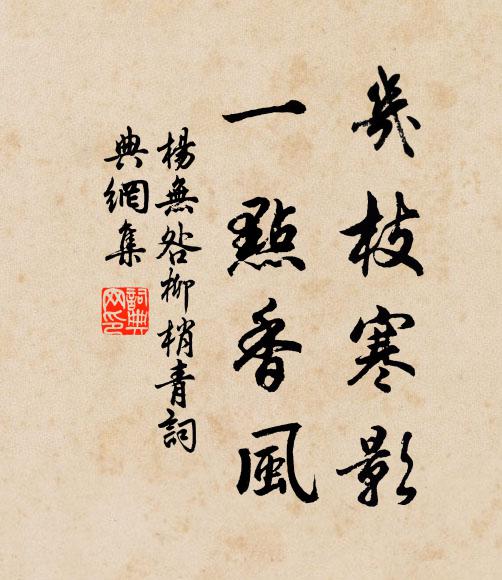 幾枝寒影
一點香風
楊無咎柳梢青詞
典網集
詞典网印